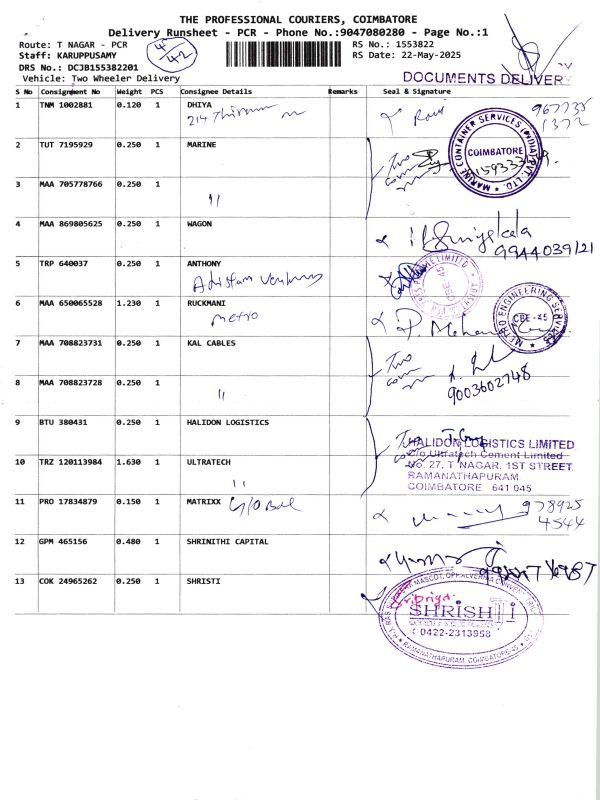 THE PROFESSIONAL COURIERS, COIMBATORE
Delivery Runsheet - PCR - Phone No.:9047080280 - Page No.:1
Route: T NAGAR - PCR RS No.: 1553822
Staff: KARUPPUSAMY RS Date: 22-May-2025
DRS No.: DCJB155382201
Vehicle: Two Wheeler Delivery DOCUMENTS DELIVERY
S No Consignment No Weight PCS Consignee Details Remarks Seal & Signature
1 TNM 1002881 0.120 1 DHIYA
2 TUT 7195929 0.250 1 MARINE
MARINE CONTAINER SERVICES (INDIA) PVT. LTD.
COIMBATORE
3 MAA 705778766 0.250 1
4 MAA 869805625 0.250 1 WAGON
9944039121
5 TRP 640037 0.250 1 ANTHONY
6 MAA 650065528 1.230 1 RUCKMANI
Metro
P. Mohan
METRO ENGINEERING SERVICES
CBE - 45
7 MAA 708823731 0.250 1 KAL CABLES
Two
8 MAA 708823728 0.250 1
9003602748
9 BTU 380431 0.250 1 HALIDON LOGISTICS
HALIDON LOGISTICS LIMITED
C/o Ultratech Cement Limited
10 TRZ 120113984 1.630 1 ULTRATECH
No. 27, T NAGAR, 1ST STREET
RAMANATHAPURAM
COIMBATORE 641 045
11 PRO 17834879 0.150 1 MATRIXX Global
978925
4544
12 GPM 465156 0.480 1 SHRINITHI CAPITAL
13 COK 24965262 0.250 1 SHRISTI
Priya
SHRISHTI
0422-2313958
RAMANATHAPURAM, COIMBATORE-45